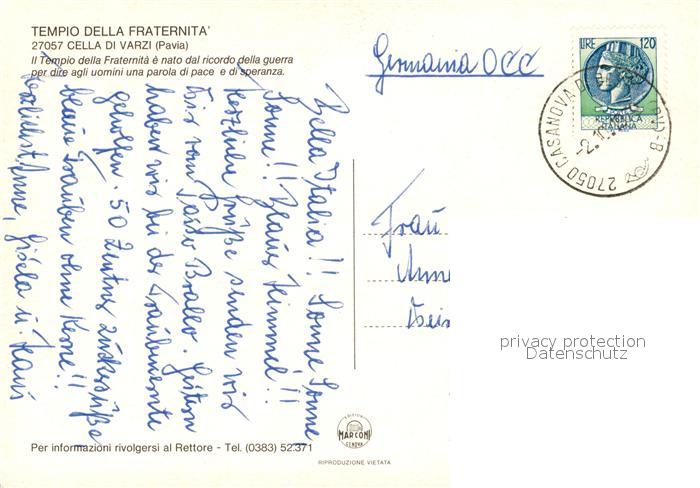 TEMPIO DELLA FRATERNITA'
27057 CELLA DI VARZI (Pavia)
Il Tempio della Fraternità è nato dal ricordo della guerra
per dire agli uomini una parola di pace e di speranza.
Germania OCC
LIRE 120
REPUBBLICA
ITALIANA
27050 CASANOVA D
(PV)-B
Bella Italia!! Sonne Sonne
Sonne!! Blauer Himmel!!
Herzliche Grüße senden wir
Dir vom Passo Brallo. Gestern
haben wir bei der Traubenernte
geholfen. 50 Zentner zuckersüße
blaue Trauben ohne Kerne!!
herzlichst Anne, Gisela u. Hans
Frau
Anne
privacy protection
Datenschutz
EDIZIONI
MARCONI
GENOVA
Per informazioni rivolgersi al Rettore - Tel. (0383) 52.371
RIPRODUZIONE VIETATA